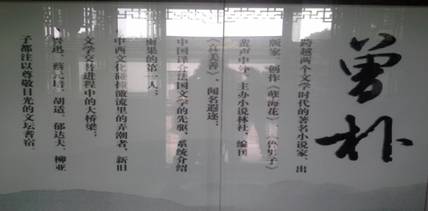 曾朴
跨越两个文学时代的著名小说家、出
版家。创作《孽海花》《鲁男子》
蜚声中外，主办小说林社，编
《真美善》，闻名遐迩；
中国译介法国文学的先驱，系统介绍
雨果的第一人；
中西文化碰撞激流里的弄潮者，新旧
文学交替进程中的大桥梁；
鲁迅、蔡元培、胡适、郁达夫、柳亚
子都注以尊敬目光的文坛耆宿。